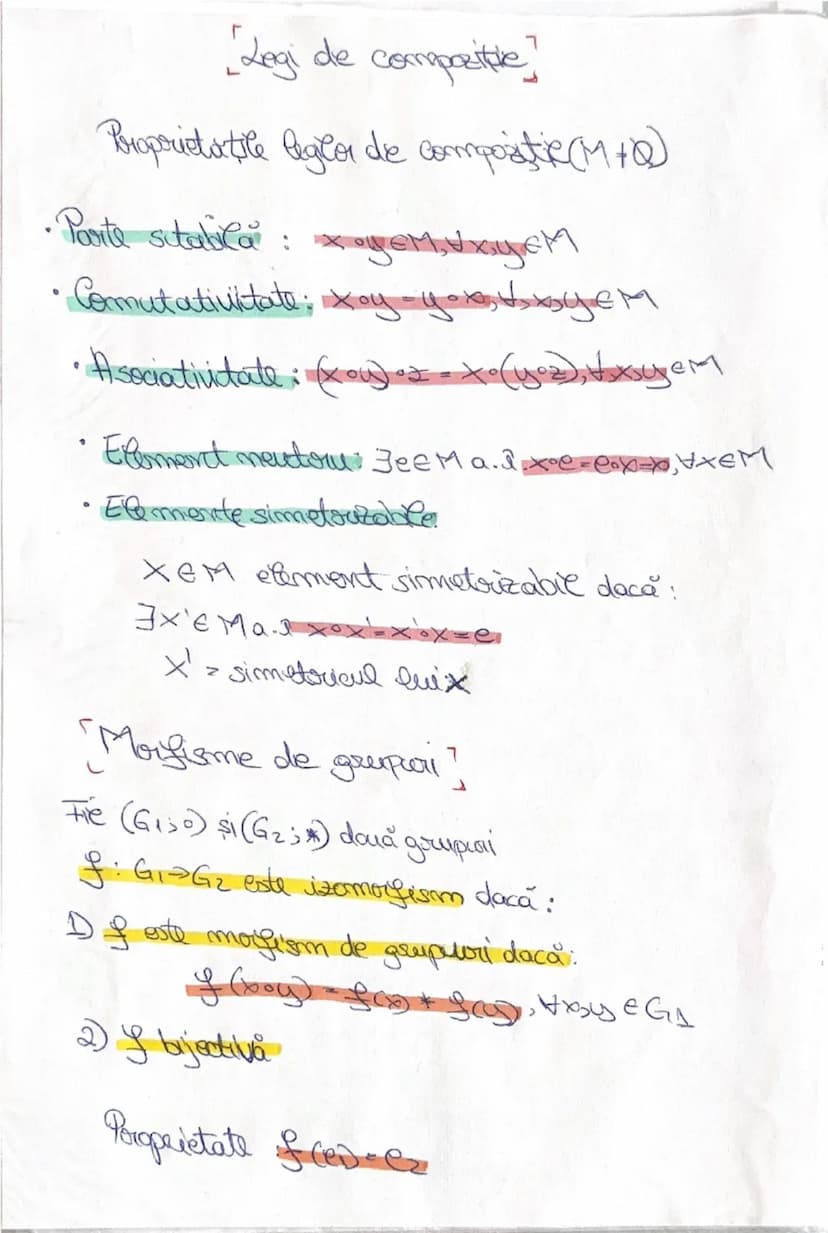 [Legi de compoziție]
Proprietățile legilor de compoziție (M,∘)
• Parte stabilă : x∘y∈M,∀x,y∈M
• Comutativitate: x∘y=y∘x,∀x,y∈M
• Asociativitate: (x∘y)∘z = x∘(y∘z),∀x,y∈M
• Element neutru: ∃e∈M a.î. x∘e=e∘x=x,∀x∈M
• Elemente simetrizabile
x∈M element simetrizabil dacă:
∃x'∈M a.î x∘x'=x'∘x=e
x' = simetricul lui x
[Morfisme de grupuri]
Fie (G₁;∘) și (G₂;*) două grupuri
f: G₁→G₂ este izomorfism dacă:
1) f este morfism de grupuri dacă:
f(x∘y) = f(x) * f(y), ∀x,y ∈G₁
2) f bijectivă
Proprietate f(e₁)=e₂